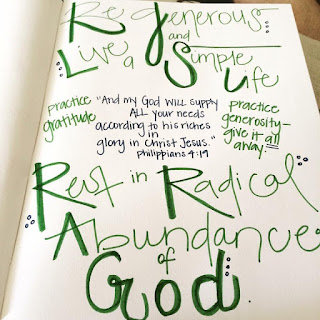 Be Generous
and
Live a Simple
Life
practice
gratitude
"And my God will supply
ALL your needs
according to his riches
in
glory in Christ Jesus."
philippians 4:19
practice
generosity-
give it all
away.
Rest in Radical
Abundance
of
God.